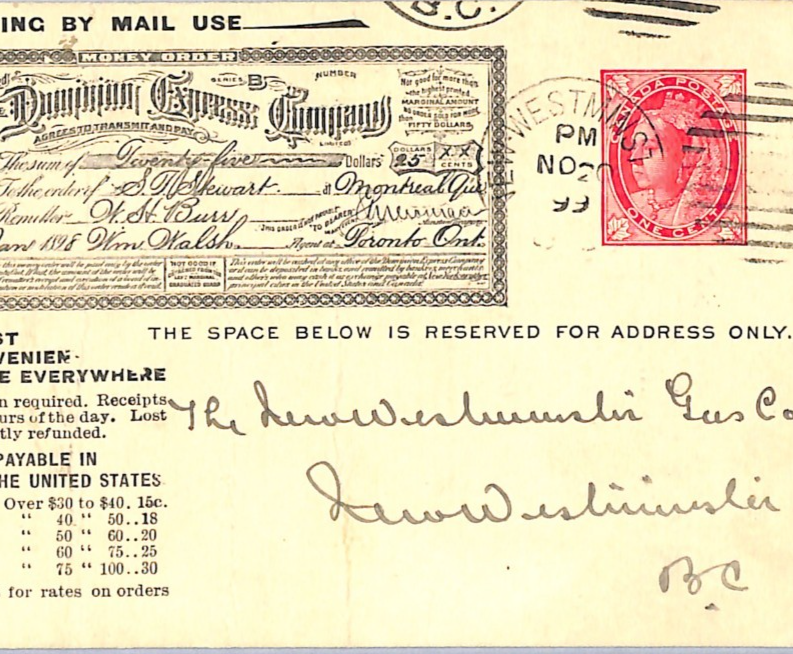 ING BY MAIL USE
B.C.
MONEY ORDER
SERIES B NUMBER
Dominion Express Company
LIMITED
AGREES TO TRANSMIT AND PAY
Not good for more than
the highest printed
MARGINAL AMOUNT
FIFTY DOLLARS
The sum of Twenty-five Dollars
DOLLARS CENTS
25 XX
To the order of S. T. Stewart at Montreal Que
Remitter W. St. Burr
1898 Wm. Walsh Agent at Toronto Ont.
NOT GOOD IF
NEW WESTMINST
PM
NO 20
99
CANADA POSTAGE
ONE CENT
ST
VENIEN
E EVERYWHERE
n required. Receipts
urs of the day. Lost
tly refunded.
PAYABLE IN
HE UNITED STATES
Over $30 to $40. 15c.
" 40 " 50..18
" 50 " 60..20
" 60 " 75..25
" 75 " 100..30
for rates on orders
THE SPACE BELOW IS RESERVED FOR ADDRESS ONLY.
The New Westminster Gas Co
New Westminster
BC